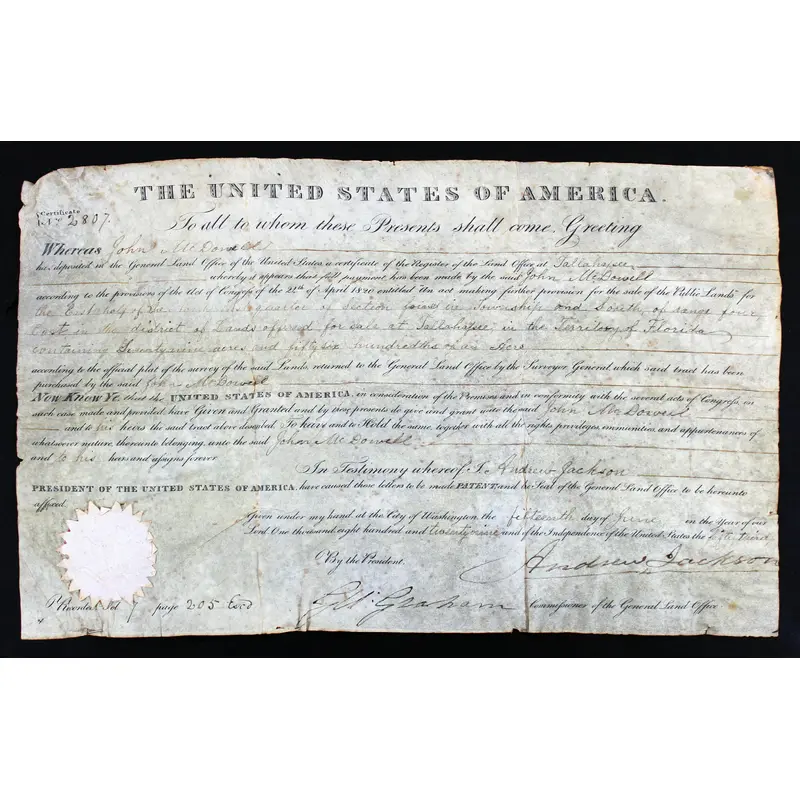 THE UNITED STATES OF AMERICA.
Certificate
No 2807.
To all to whom these Presents shall come, Greeting
Whereas John McDowell
has deposited in the General Land Office of the United States, a certificate of the Register of the Land Office at Tallahassee
whereby it appears that full payment has been made by the said John McDowell
according to the provisions of the Act of Congress of the 24th of April 1820 entitled "An act making further provision for the sale of the Public Lands" for
the East half of the quarter of section four in Township South of range four
East in the district of Lands offered for sale at Tallahassee, in the Territory of Florida
containing Seventy nine acres and fifty six hundredths of an Acre
according to the official plat of the survey of the said Lands, returned to the General Land Office by the Surveyor General, which said tract has been
purchased by the said John McDowell
Now Know Ye, that the UNITED STATES OF AMERICA, in consideration of the Premises and in conformity with the several acts of Congress, in
such case made and provided, have Given and Granted and by these presents do give and grant unto the said John McDowell
and to his heirs the said tract above described. To have and to Hold the same, together with all the rights, privileges, immunities, and appurtenances of
whatsoever nature thereunto belonging, unto the said John McDowell
and to his heirs and assigns forever.
In Testimony whereof I, Andrew Jackson
PRESIDENT OF THE UNITED STATES OF AMERICA, have caused these letters to be made PATENT, and the Seal of the General Land Office to be hereunto
affixed.
Given under my hand at the City of Washington, the fifteenth day of June in the Year of our
Lord One thousand eight hundred and twenty nine and of the Independence of the United States the third
By the President. Andrew Jackson
Recorded Vol 7 page 205 G W Graham Commissioner of the General Land Office